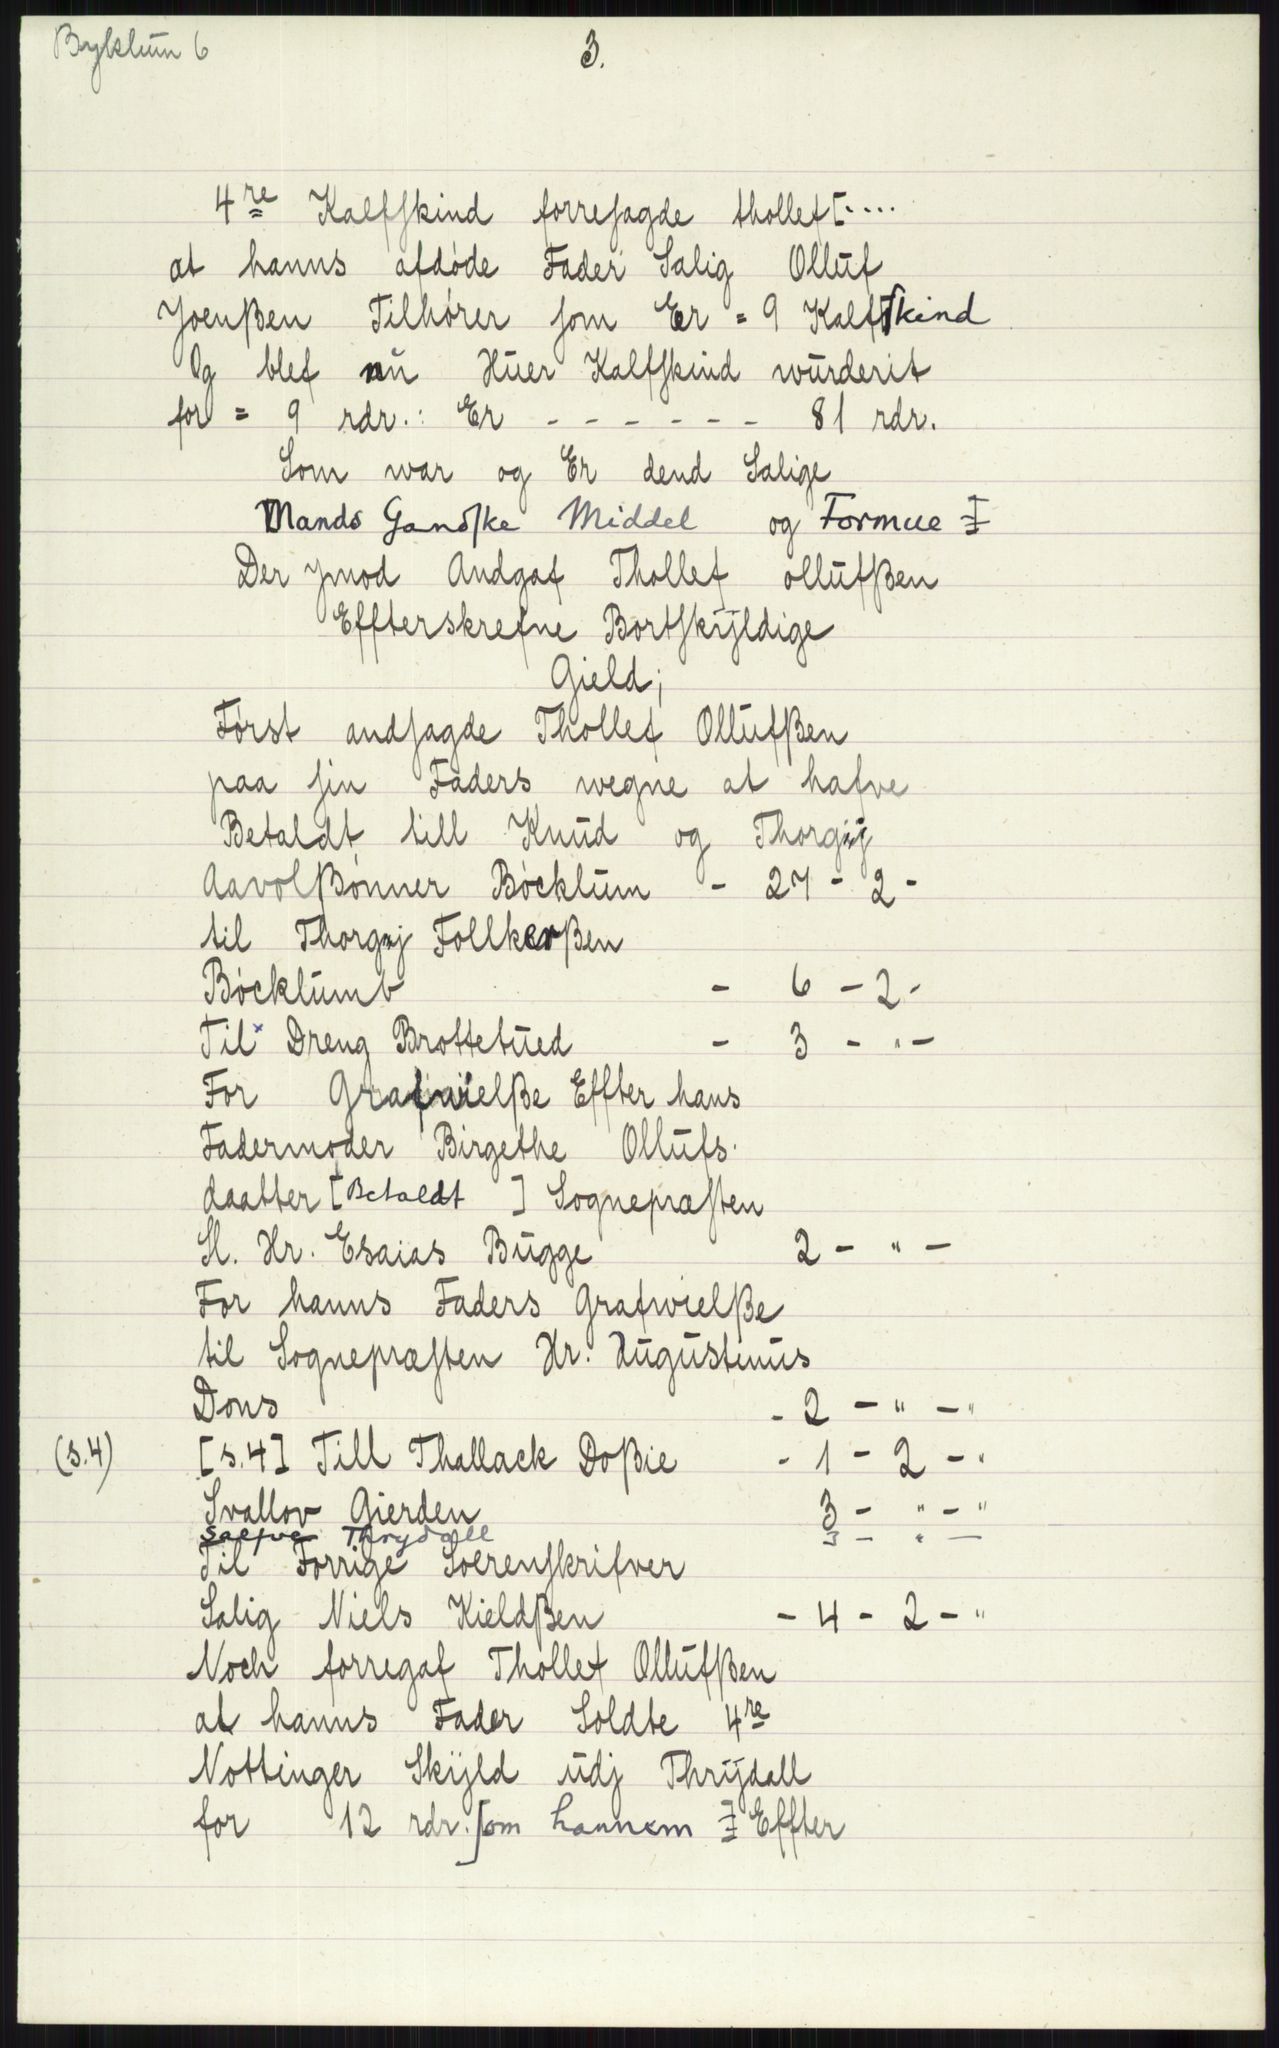 Byklum 6
3.
4re Kalfskind forresagde thollef [....
at hanns afdøde Fader Salig Olluf
Joenßen Tilhører som Er = 9 Kalfskind
Og blef nu Huer Kalfskind wurderit
for = 9 rdr.: Er - - - - - - 81 rdr.
Som war og Er dend Salige
Mands Ganske Middel og Formue
Der ymod Andgaf Thollef ollufßen
Effterskrefne Bortskÿldige
Gield;
Først andsagde Thollef Ollufßen
paa sin Faders wegne at hafve
Betaldt till Knud og Thorgij
Aavolßønner Bøcklum - 27 - 2 -
til Thorgij Follkerßen
Bøcklumb - 6 - 2 -
Til x Dreng Brottetued - 3 - " -
For Grafwielße Effter hans
Fadermoder Birgethe Ollufs.
daatter [Betaldt ] Sognepræsten
Sl. Hr. Esaias Bugge 2 - " -
For hanns Faders Grafwielße
til Sognepræsten Hr. Augustinus
Dons - 2 - " - "
(s.4) [s.4] Till Thallack Doßie - 1 - 2 - "
Svallov Gierden 3 - " - "
Saafve Thrydall 3 - " -
Til Forrige Soerenskrifver
Salig Niels Kieldßen - 4 - 2 - "
Noch forregaf Thollef Ollufßen
at hanns Fader Soldte 4re
Nottinger Skÿld udj Thrÿdall
for 12 rdr. som hannem Effter